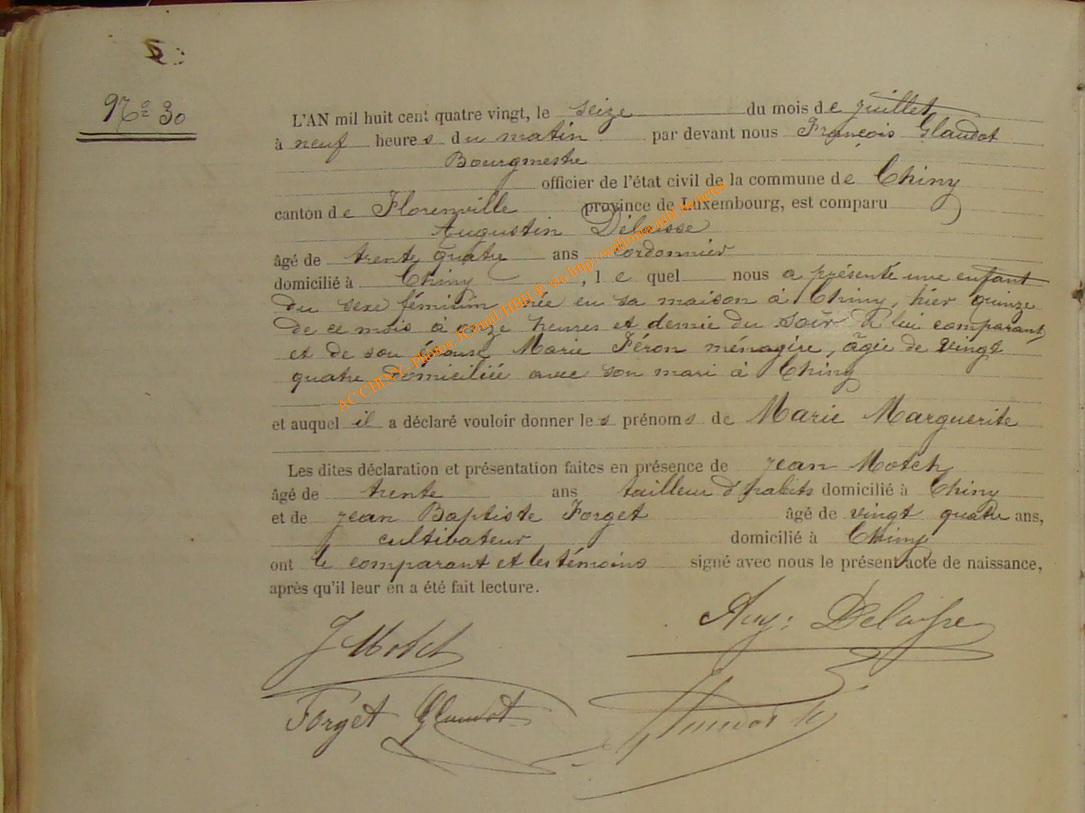 Nº 30
L'AN mil huit cent quatre vingt, le seize du mois de juillet
à neuf heures du matin par devant nous François Glaudot
Bourgmestre
officier de l'état civil de la commune de Chiny
canton de Florenville province de Luxembourg, est comparu
Augustin Delaisse
âgé de trente quatre ans cordonnier
domicilié à Chiny, lequel nous a présenté une enfant
du sexe féminin née en sa maison à Chiny, hier quinze
de ce mois à onze heures et demie du soir à lui comparant,
et de son épouse Marie Féron ménagère, âgée de vingt
quatre domiciliée avec son mari à Chiny
et auquel il a déclaré vouloir donner les prénoms de Marie Marguerite
Les dites déclaration et présentation faites en présence de Jean Motch
âgé de trente ans tailleur d'habits domicilié à Chiny
et de Jean Baptiste Forget âgé de vingt quatre ans,
cultivateur domicilié à Chiny
ont le comparant et les témoins signé avec nous le présent acte de naissance,
après qu'il leur en a été fait lecture.
J Motch Aug: Delaisse
Forget Glaudot
ACCHINY